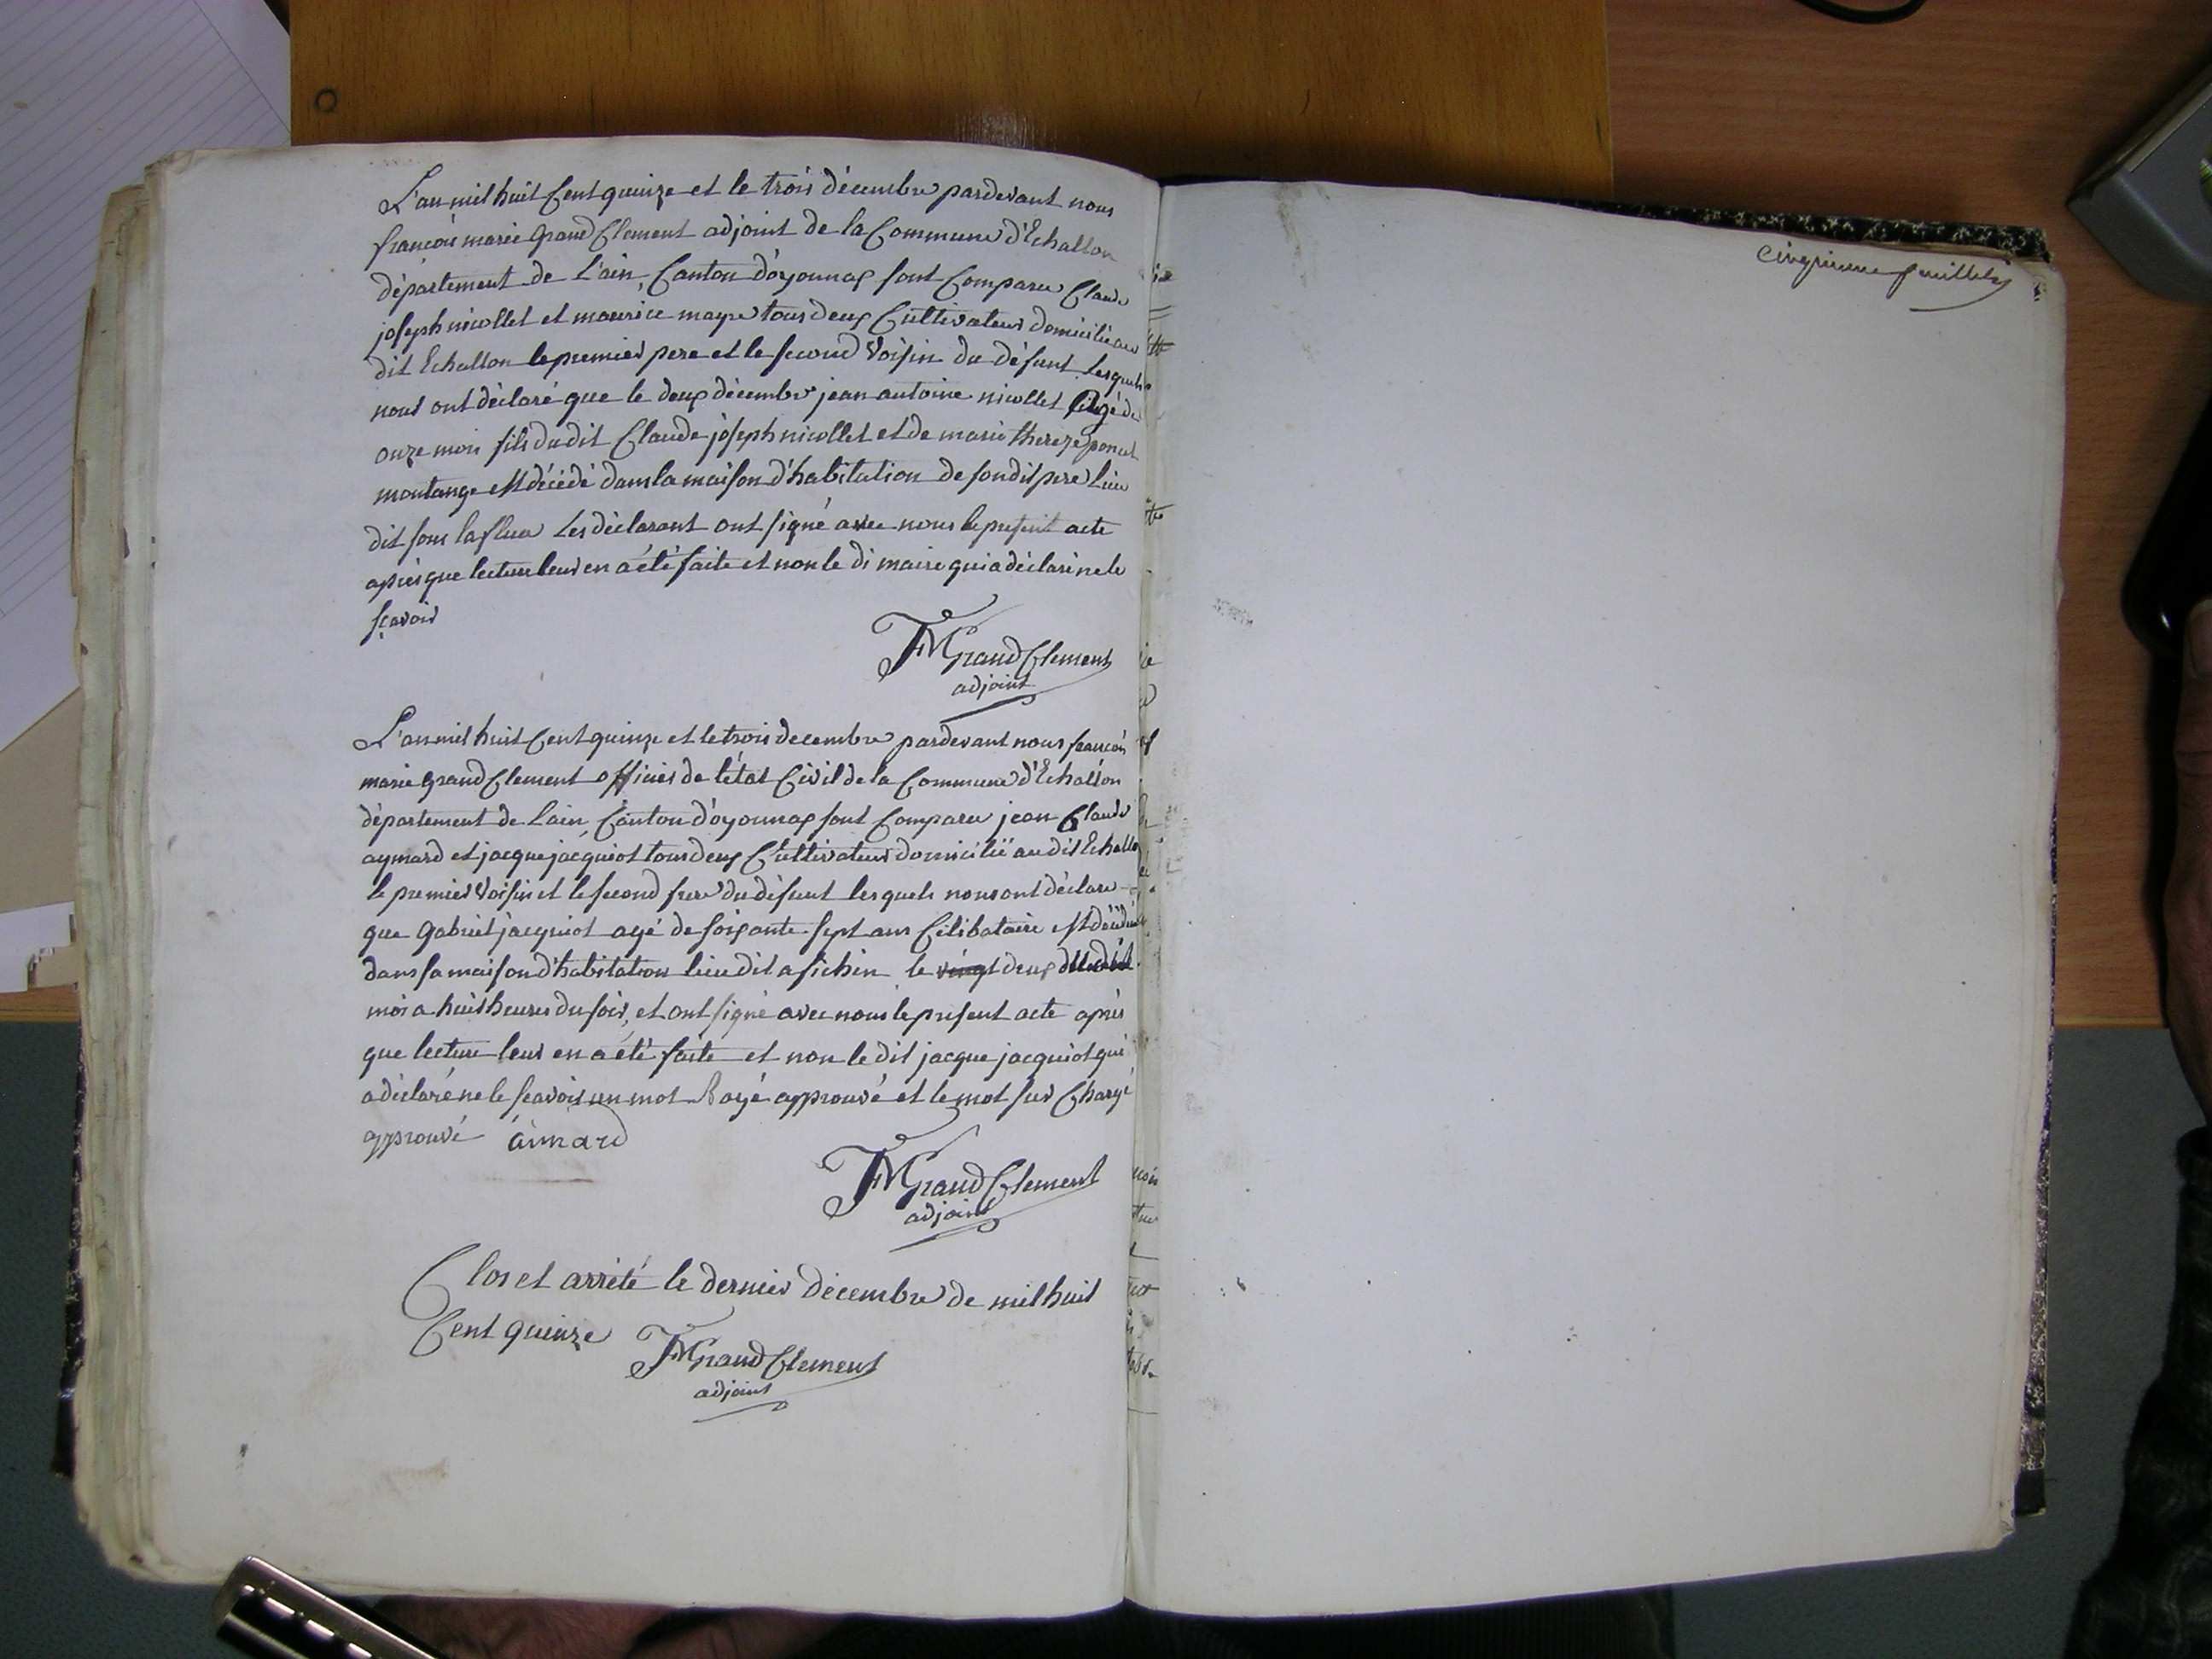 L'an mil huit Cent quinze et le trois décembre pardevant nous
francois marie grand Clement adjoint de la Commune d'Echallon
département de L'ain, Canton d'oyonnax sont Comparu Claude
joseph nicollet et maurice mayre tous deux Cultivateurs domicilié au
dit Echallon le premier pere et le second Voisin du défunt Lesquels
nous ont déclaré que le deux décembre jean antoine nicollet Agé de
onze mois fils du dit Claude joseph nicollet et de marie thereze poncet
montange est décédé dans la maison d'habitation de son dit pere Lieu
dit sous Les déclarant ont signé avec nous le present acte
après que lecture leur en a été faite et non le di maire qui a déclaré ne le
scavoir
FM Grand Clement
adjoint
L'an mil huit Cent quinze et le trois decembre pardevant nous francois
marie grand Clement officier de l'état Civil de la Commune d'Echallon
département de Lain, Canton d'oyonnax sont Comparu jean Claude
aymard et jacque jacquiot tous deux Cultivateurs domicilié au dit Echallo
le premier Voisin et le second frere du défunt lesquels nous ont déclaré
que gabriel jacquiot agé de soixante sept ans Célibataire est décédé
dans sa maison d'habitation lieu dit a sichin le vingt deux dudit
mois a huit heures du soir, et ont signé avec nous le present acte après
que lecture leur en a été faite et non le dit jacque jacquiot qui
a déclaré ne le scavoir un mot Rayé approuvé et le mot sur Chargé
approuvé aimard
FM Grand Clement
adjoint
Clos et arrété le dernier décembre de mil huit
Cent quinze
FM Grand Clement
adjoint
cinquieme feuillet